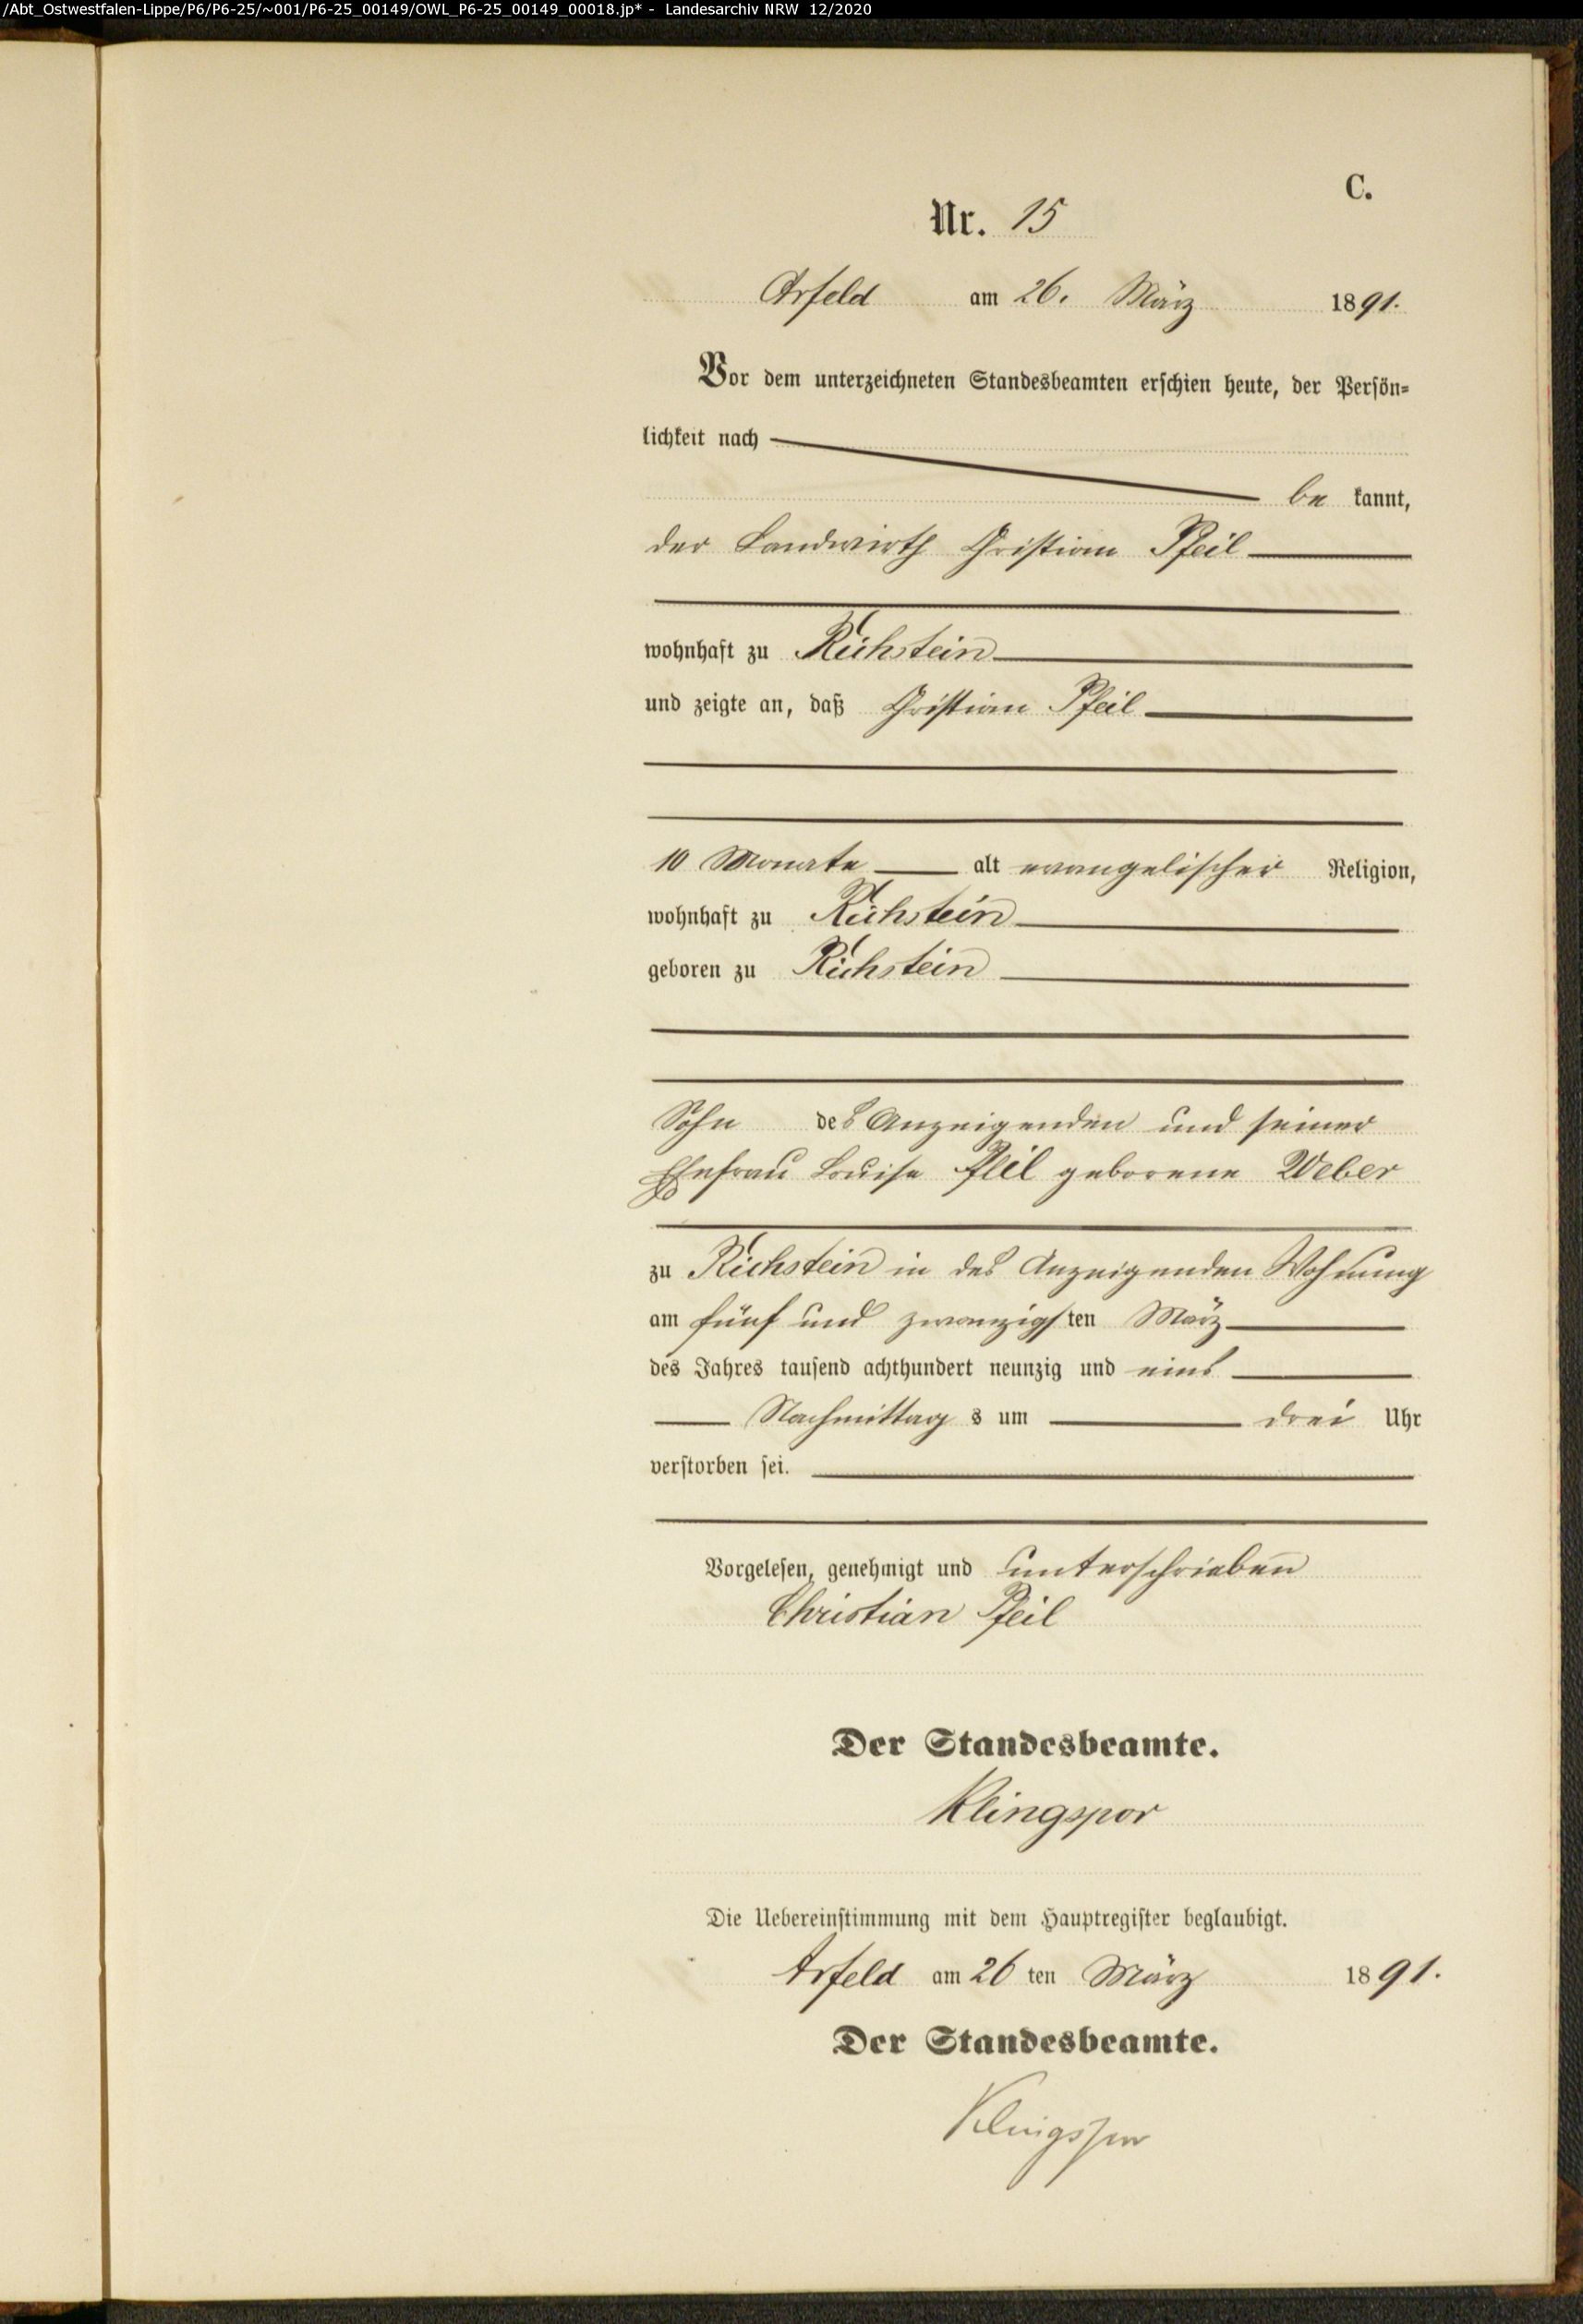 /Abt_Ostwestfalen-Lippe/P6/P6-25/~001/P6-25_00149/OWL_P6-25_00149_00018.jp* - Landesarchiv NRW 12/2020
C.
Nr. 15
Arfeld am 26. März 1891.
Vor dem unterzeichneten Standesbeamten erschien heute, der Persön=
lichkeit nach
be kannt,
der Landwirth Christian Pfeil
wohnhaft zu Richstein
und zeigte an, daß Christian Pfeil
10 Monate alt evangelischer Religion,
wohnhaft zu Richstein
geboren zu Richstein
Sohn des Anzeigenden und seiner
Ehefrau Louise Pfeil geborene Weber
zu Richstein in des Anzeigenden Wohnung
am fünf und zwanzigsten März
des Jahres tausend achthundert neunzig und eins
Nachmittag s um drei Uhr
verstorben sei.
Vorgelesen, genehmigt und unterschrieben
Christian Pfeil
Der Standesbeamte.
Klingspor
Die Uebereinstimmung mit dem Hauptregister beglaubigt.
Arfeld am 26 ten März 1891.
Der Standesbeamte.
Klingspor